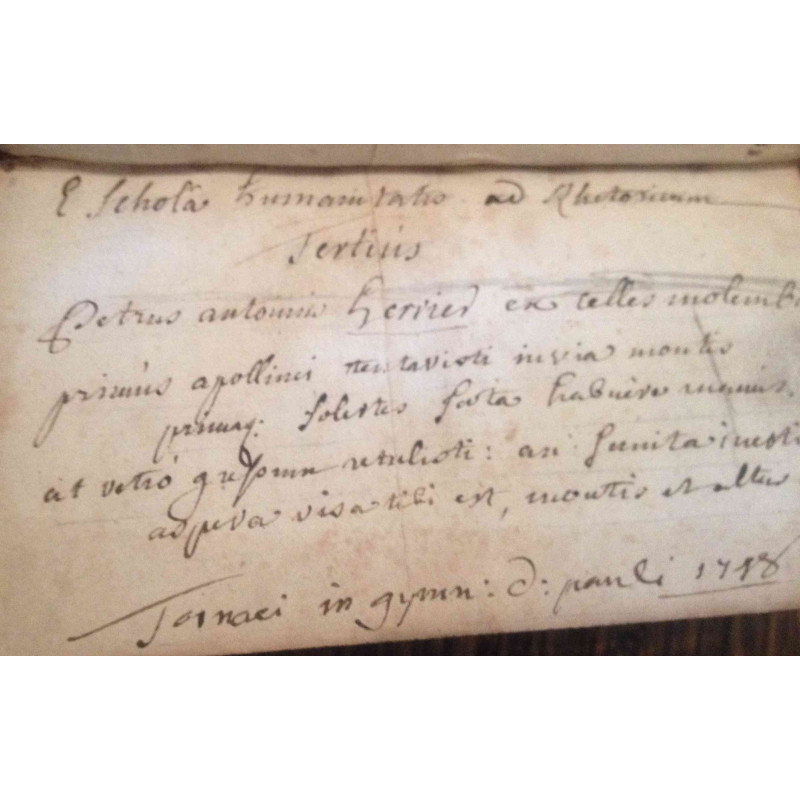 E Scholâ humanitatis ad Rhetoricam
Tertius
Petrus antonius herrier ex celles molemb
primus apollinei tentavisti invia montis
primaq: solertes facta habuere manus.
at retrò gressum retulisti: an semita
aspera visa tibi est, montis et altus
Tornaci in gymn: d: pauli 1748